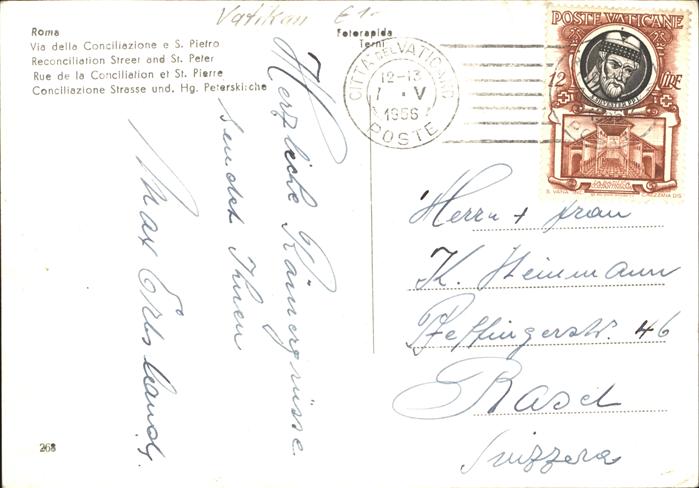 Vatikan £ 1.-
Roma
Via della Conciliazione e S. Pietro
Reconciliation Street and St. Peter
Rue de la Conciliation et St. Pierre
Conciliazione Strasse und. Hg. Peterskirche
Fotorapida
Terni
CITTA DEL VATICANO
12-13
1 . V
1956
POSTE
POSTE VATICANE
12 LIRE
Herzliche Römergrüsse
sendet Ihnen
Max
Herrn + Frau
K. Heinmann
46
Basel
Svizzera
268